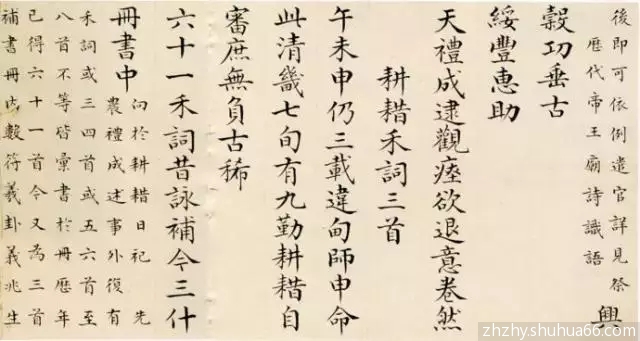 後即可依例遣官詳見祭
歷代帝王廟詩識語
興
穀功垂古
綏豐惠助
天禮成逮觀瘞欲退意卷然
耕耤禾詞三首
午未申仍三載違甸師申命
此清畿七旬有九勤耕耤自
審庶無負古稀
六十一禾詞昔詠補今三什
冊書中
向於耕耤日祀 先
農禮成述事外復有
禾詞或三四首或五六首至
八首不等皆彙書於冊歷年
已得六十一首今又為三首
補書冊內數符羲卦義兆生
zhzhy.shuhua66.com